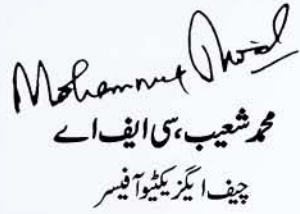 Mohammad Shoaib
محمد شعیب، سی ایف اے
چیف ایگزیکٹیو آفیسر